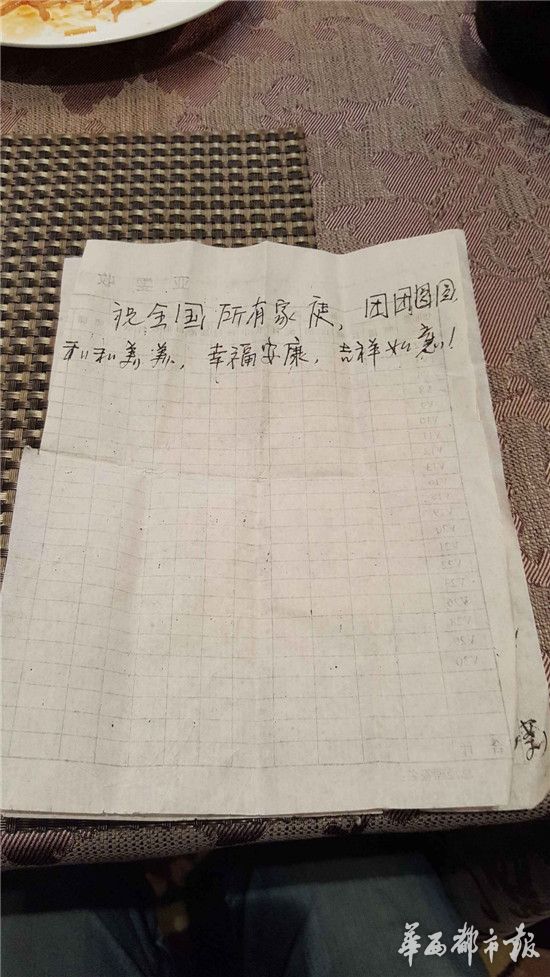 祝全国所有家庭，团团圆圆
和和美美，幸福安康，吉祥如意！
華西都市报